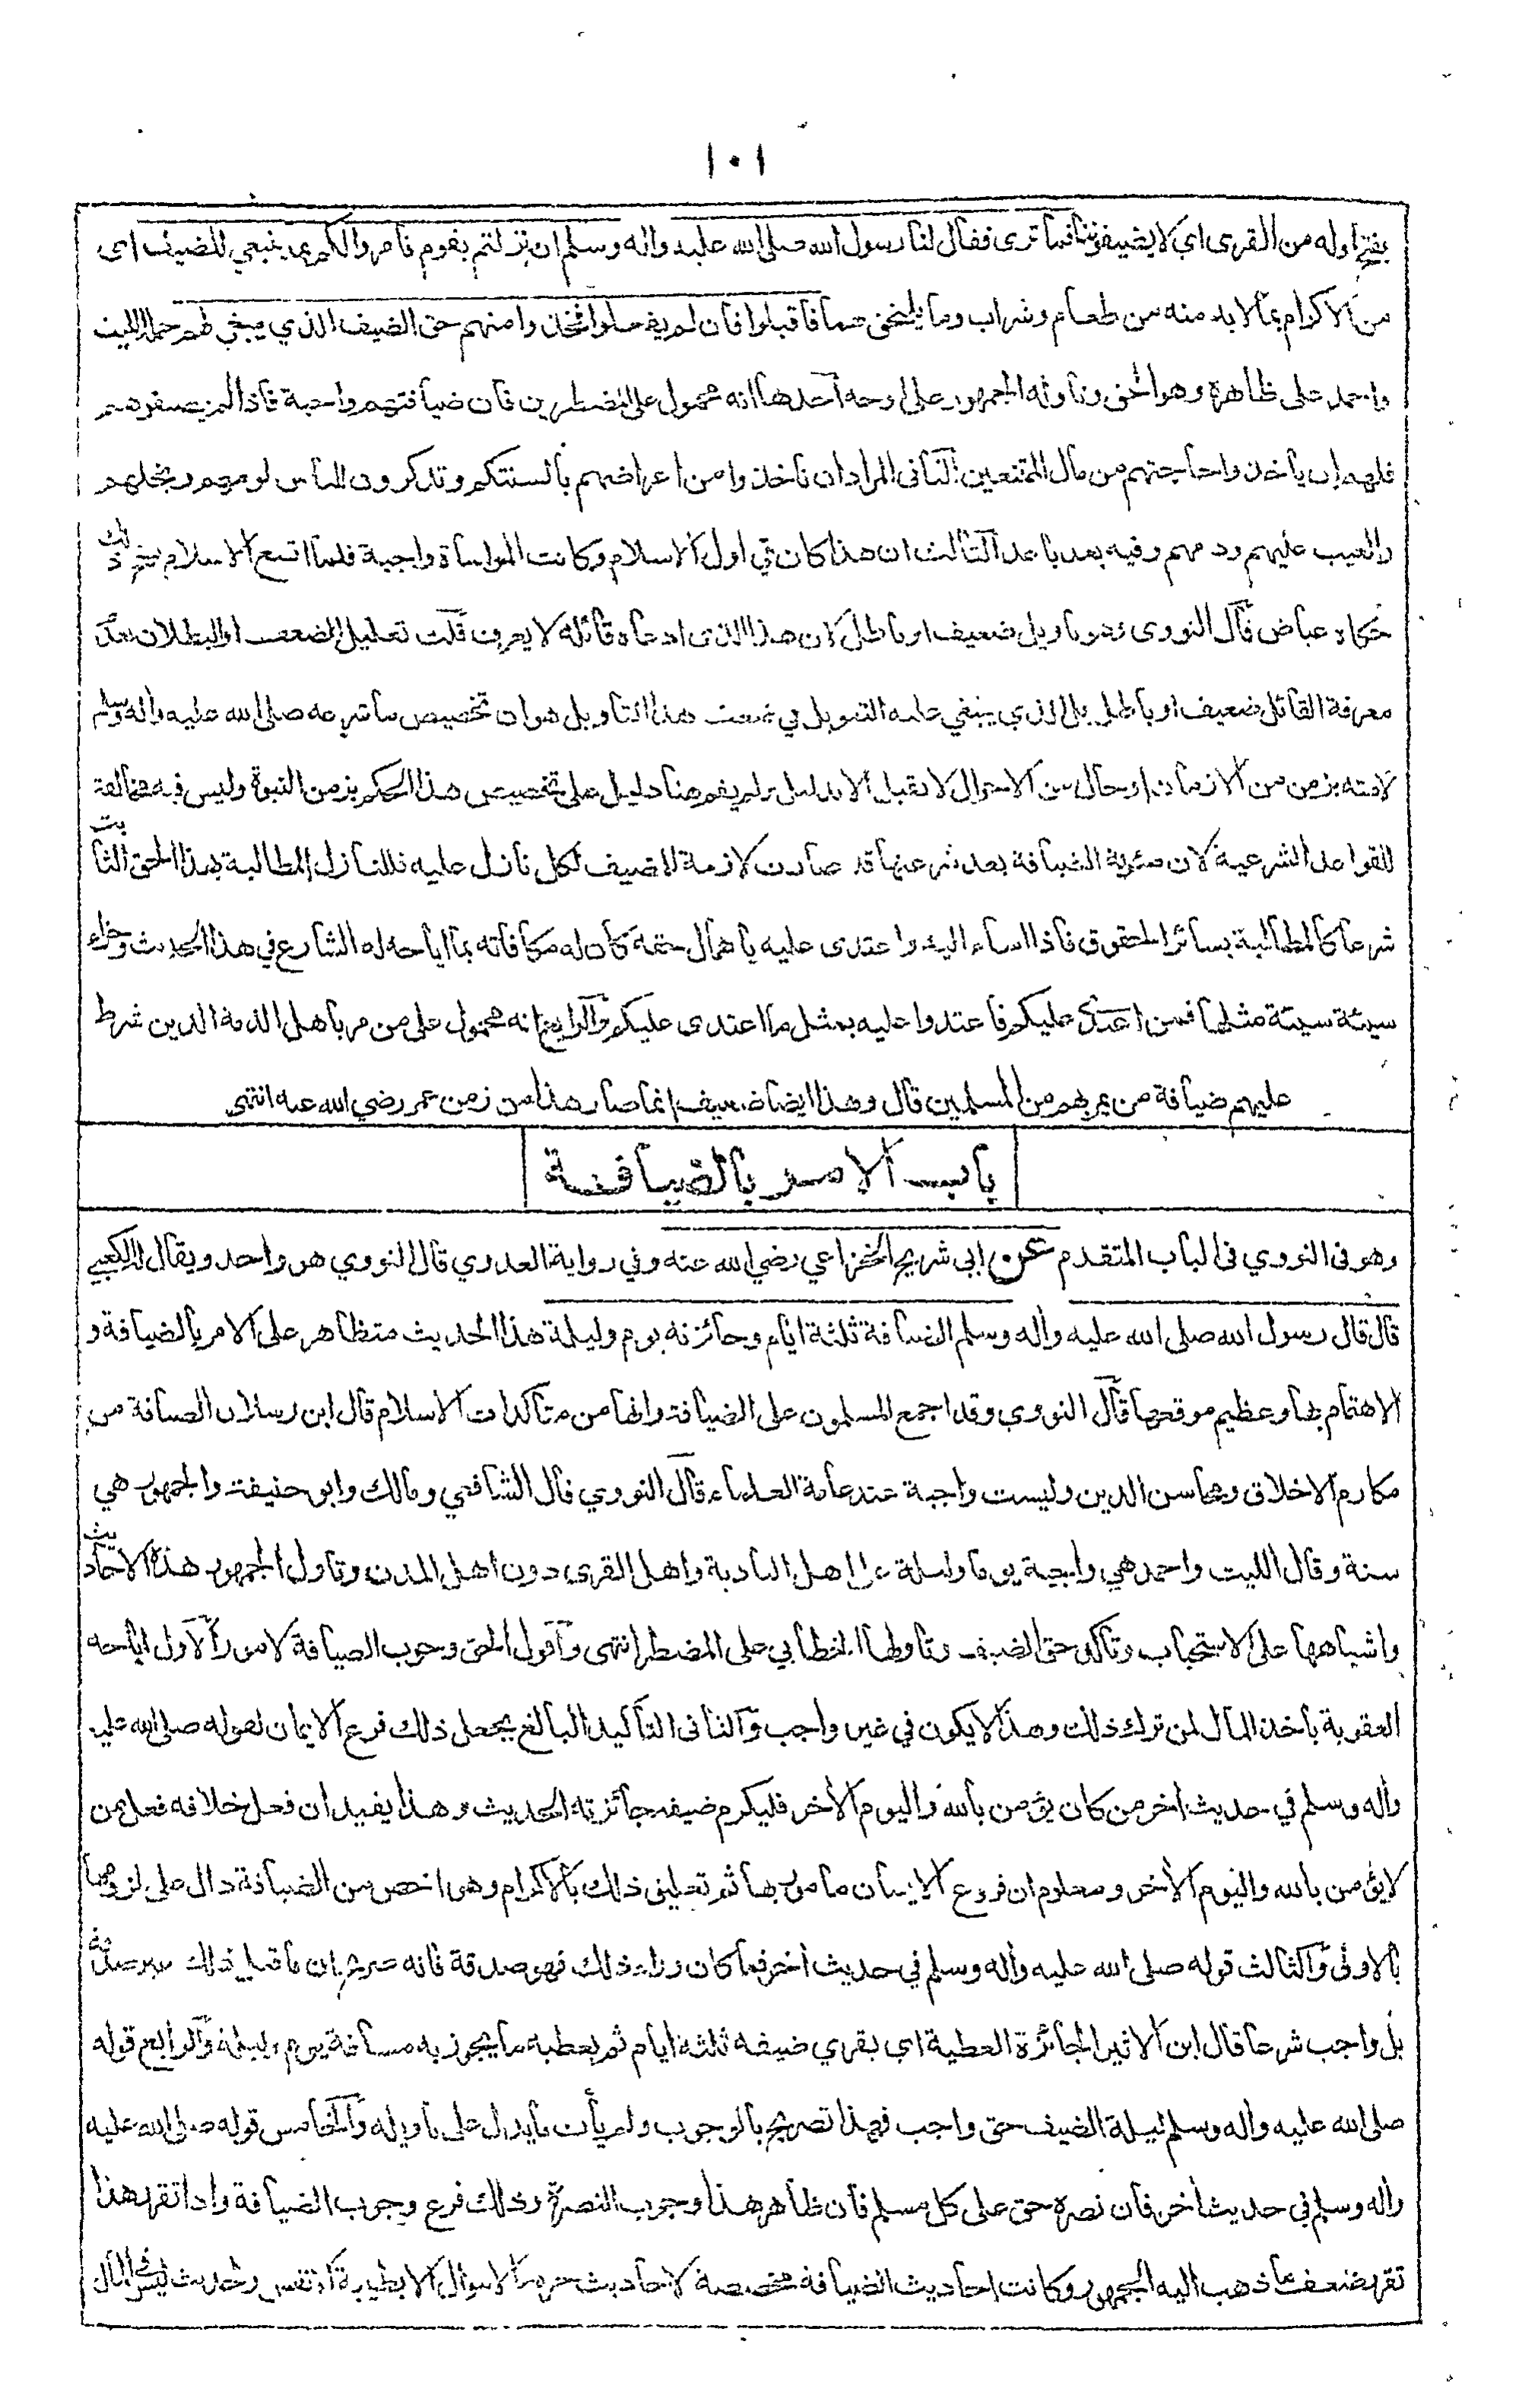 ١٠١
بفتح اوله من القرى اي لا يضيفوننا فما ترى فقال لنا رسول الله صلى الله عليه واله وسلم ان نزلتم بقوم فأمروا لكم بما ينبغي للضيف اى
من الاكرام بما لا بد منه من طعام وشراب وما يلتحق بهما فاقبلوا فان لم يفعلوا فخذوا منهم حق الضيف الذي ينبغي لهم حمله الليث
واحمد على ظاهره وهو الحق وتأوله الجمهور على اوجه احدها انه محمول على المضطرين فان ضيافتهم واجبة فاذا لم يضيفوهم
فلهم ان يأخذوا حاجتهم من مال الممتنعين الثانى المراد ان تأخذوا من اعراضهم بألسنتكم وتذكرون للناس لومهم وبخلهم
والعيب عليهم وذمهم وفيه بعد باعد الثالث ان هذا كان في اول الاسلام وكانت المواساة واجبة فلما اتسع الاسلام نسخ ذلك
حكاه عياض قال النووى وهو تاويل ضعيف او باطل لان هذا الذى ادعاه قائله لا يعرف قلت تعليل الضعف او البطلان بعدم
معرفة القائل ضعيف او باطل بل الذي ينبغي عليه التعويل في ضعف هذا التأويل هو ان تخصيص ما شرعه صلى الله عليه واله وسلم
لامته بزمن من الازمان او حال من الاحوال لا يقبل الا بدليل ولم يقم هنا دليل على تخصيص هذا الحكم بزمن النبوة وليس فيه مخالفة
للقواعد الشرعية لان مئونة الضيافة بعد شرعتها قد صارت لازمة للمضيف لكل نازل عليه فللنازل المطالبة بهذا الحق الثابت
شرعا كالمطالبة بسائر الحقوق فاذا اساء اليه واعتدى عليه باهمال حقه كان له مكافاته بما اباحه له الشارع في هذا الحديث وجزاء
سيئة سيئة مثلها فمن اعتدى عليكم فاعتدوا عليه بمثل ما اعتدى عليكم والرابع انه محمول على من مر باهل الذمة الذين شرط
عليهم ضيافة من يمر بهم من المسلمين قال وهذا ايضا ضعيف انما صار هذا من زمن عمر رضي الله عنه انتهى
باب الامر بالضيافة
وهو فى النووي فى الباب المتقدم عن ابي شريح الخزاعي رضي الله عنه وفي رواية العدوي قال النووي هو واحد ويقال له الكعبي
قال قال رسول الله صلى الله عليه واله وسلم الضيافة ثلثة ايام وجائزته يوم وليلة هذا الحديث متظاهر على الامر بالضيافة و
الاهتمام بها وعظيم موقعها قال النووي وقد اجمع المسلمون على الضيافة وانها من متأكدات الاسلام قال ابن رسلان الضيافة من
مكارم الاخلاق ومحاسن الدين وليست واجبة عند عامة العلماء قال النووي قال الشافعي ومالك وابو حنيفة والجمهور هي
سنة وقال الليث واحمد هي واجبة يوما وليلة على اهل البادية واهل القرى دون اهل المدن وتاول الجمهور هذه الاحاديث
واشباهها على الاستحباب وتأكد حق الضيف وتاولها الخطابي على المضطر انتهى واقول الحق وجوب الضيافة لامور الاول اباحة
العقوبة بأخذ المال لمن ترك ذلك وهذا لا يكون في غير واجب والثانى التأكيد البالغ بجعل ذلك فرع الايمان لقوله صلى الله عليه
واله وسلم في حديث اخر من كان يؤمن بالله واليوم الاخر فليكرم ضيفه جائزته الحديث وهذا يفيد ان فعل خلافه فعل من
لا يؤمن بالله واليوم الاخر ومعلوم ان فروع الايمان مأمور بها ثم تعليق ذلك بالاكرام وهو اخص من الضيافة دال على لزومها
بالاولى والثالث قوله صلى الله عليه واله وسلم في حديث اخر فما كان وراء ذلك فهو صدقة فانه صرح بان ما قبل ذلك غير صدقة
بل واجب شرعا قال ابن الاثير الجائزة العطية اي يقري ضيفه ثلثة ايام ثم يعطيه ما يجوز به مسافة يوم وليلة والرابع قوله
صلى الله عليه واله وسلم ليلة الضيف حق واجب فهذا تصريح بالوجوب ولم يأت ما يدل على تاويله والخامس قوله صلى الله عليه
واله وسلم في حديث اخر فان نصره حق على كل مسلم فان ظاهر هذا وجوب النصرة وذلك فرع وجوب الضيافة واذا تقرر هذا
تقرر ضعف ما ذهب اليه الجمهور وكانت احاديث الضيافة مخصصة لاحاديث حرمة الاموال الا بطيبة الانفس ولحديث ليس في المال